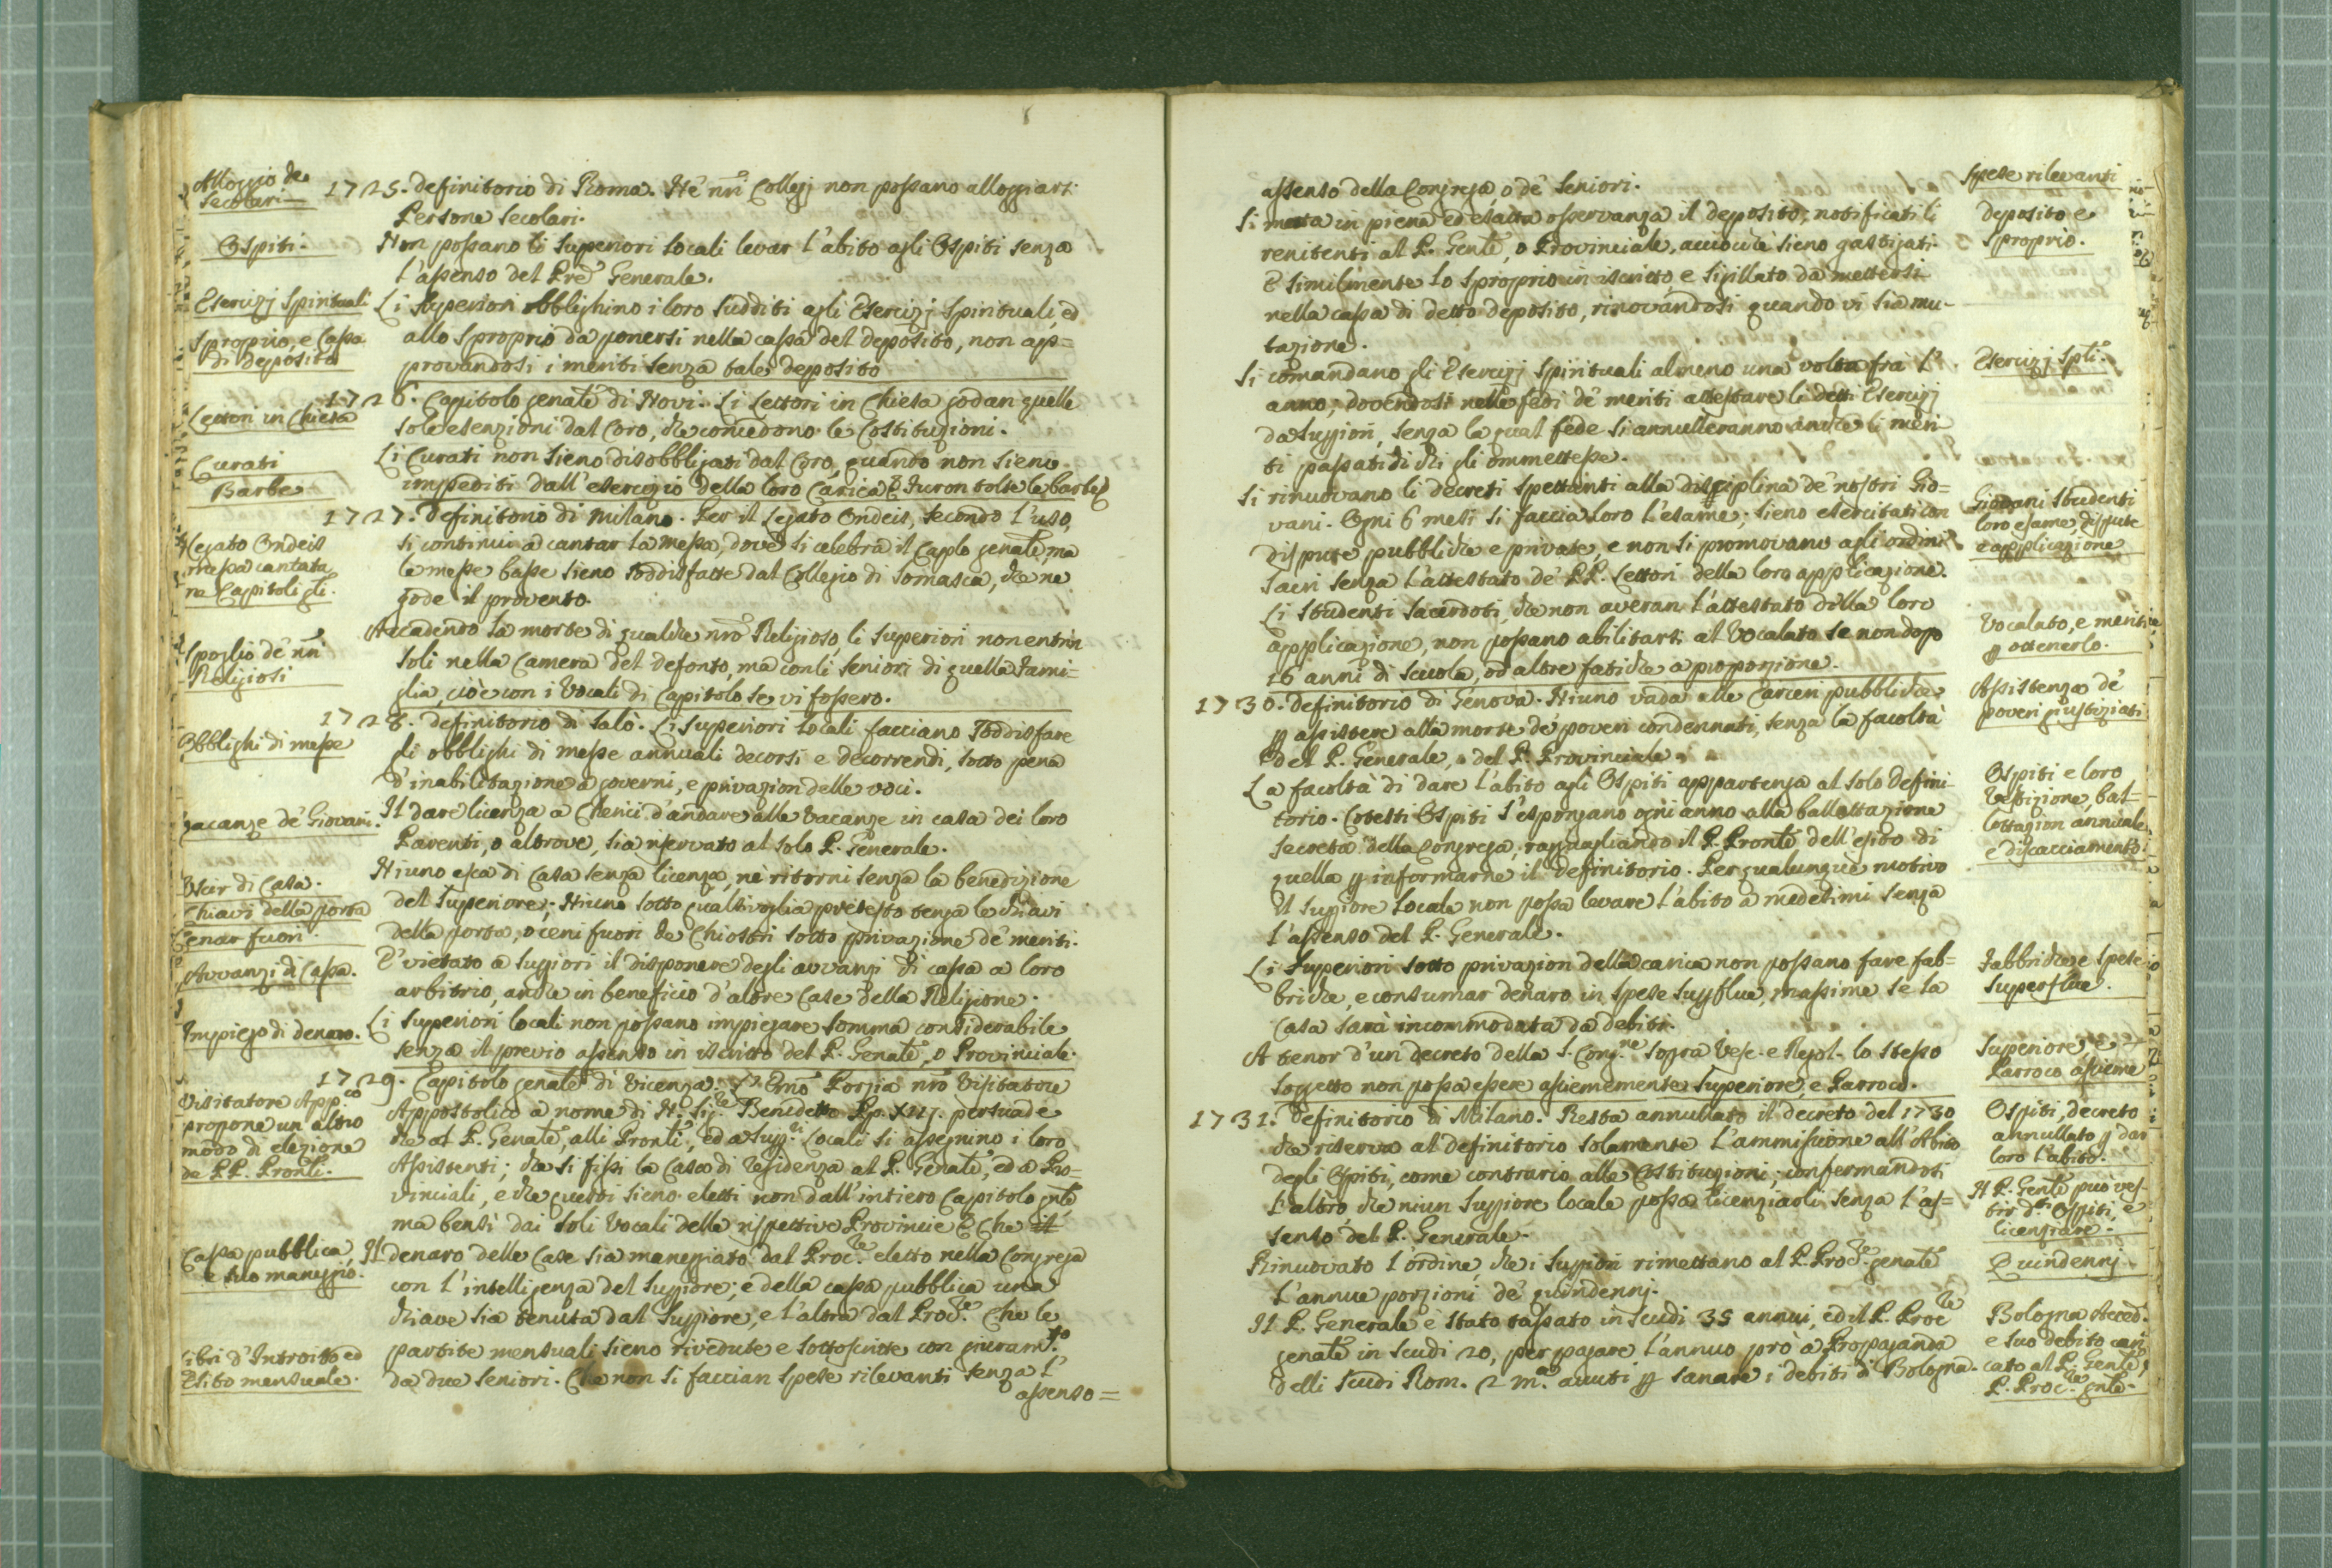 Alloggio de
Secolari
1725. Definitorio di Roma. Ne' nri Collegj non possano alloggiarsi
Persone Secolari.
Ospiti.
Non possano li Superiori locali levar l'abito agli Ospiti senza
l'assenso del Pre Generale.
Esercizj Spirituali
Li Superiori obblighino i loro Sudditi agli Esercizj Spirituali, ed
Sproprio, e Cassa
di deposito
allo Sproprio da ponersi nella cassa del deposito, non ap=
provandosi i meriti senza tale deposito
1726. Capitolo genale di Novi. Li Lettori in Chiesa godan quelle
Lettori in Chiesa
sole esenzioni dal Coro, che concedono le Costituzioni.
Curati
Li Curati non sieno disobbligati dal Coro, quando non sieno
Barbe
impediti dall'esercizio della loro Carica. E furon tolte le barbe
1727. Definitorio di Milano. Per il Legato Ondeis, secondo l'uso,
Legato Ondeis
messa cantata
ne Capitoli gli.
si continui a cantar la Messa, dove si celebra il Caplo genale, ma
le messe basse sieno soddisfatte dal Collegio di Somasca, che ne
gode il provento.
Spoglio de' nri
Religiosi
Accadendo la morte di qualche nro Religioso, li Superiori non entrin
soli nella Camera del defonto, ma con li Seniori di quella Fami=
glia, cioè con i Vocali di Capitolo se vi fossero.
1728. Definitorio di Salò. Li Superiori locali facciano soddisfare
Obblighi di messe
gli obblighi di messe annuali decorsi e decorrendi, sotto pena
d'inabilitazione a governi, e privazion delle voci.
Vacanze de' Giovani.
Il dare licenza a Chierici d'andare alle Vacanze in casa dei loro
Parenti, o altrove, sia riservato al solo P. Generale.
Uscir di Casa.
Niuno esca di Casa senza licenza, nè ritorni senza la benedizione
Chiavi della porta
del Superiore; Niuno sotto qualsivoglia pretesto tenga le chiavi
Cenar fuori.
della porta, o ceni fuori de Chiostri sotto privazione de' meriti.
Avvanzi di Cassa.
E' vietato a Suppiori il disponere degli avvanzi di cassa a loro
arbitrio, anche in beneficio d'altre Case della Religione.
Impiego di denaro.
Li Superiori locali non possano impiegare somma considerabile
senza il previo assenso in iscritto del P. Genale, o Provinciale.
1729. Capitolo genale di Vicenza. L'Emo Porzia nro Visitatore
Visitatore App.co
propone un altro
modo di elezione
de PP. Pronli.
Appostolico a nome di N. Sig.re Benedetto Pp. XIIJ. persuade
che al P. Genale, alli Pronli, ed a Supp.ri Locali si assegnino i loro
Assistenti; che si fissi la Casa di residenza al P. Genale, ed a Pro=
vinciali, e che questi sieno eletti non dall'intiero Capitolo gnle
ma bensì dai soli Vocali delle rispettive Provincie E Che il
Cassa pubblica,
e suo maneggio.
Il denaro delle Case sia maneggiato dal Proc.re eletto nella Congrega
con l'intelligenza del Suppiore; e della cassa pubblica una
chiave sia tenuta dal Suppiore, e l'altra dal Proc.re Che le
Libri d'Introito ed
Esito mensuale.
partite mensuali sieno rivedute e sottoscritte con giuram.to
da due Seniori. Che non si faccian spese rilevanti senza l'
assenso =
assenso della Congrega, o de' Seniori.
Spese rilevanti
Si metta in piena ed esatta osservanza il deposito; notificati li
deposito e
Sproprio.
renitenti al P. Genle, o Provinciale, acciocchè sieno gastigati.
E similmente lo Sproprio in iscritto, e sigillato da mettersi
nella cassa di detto deposito, rinovandosi quando vi sia mu-
tazione.
Si comandano gli Esercizj Spirituali almeno una volta fra l'
Esercizj Spli.
anno; dovendosi nelle fedi de' meriti attestare li detti Esercizj
da Suppiori, senza la qual fede si annulleranno anche li meri
ti passati di chi gli ommettesse.
Si rinuovano li decreti spettanti alla disciplina de' nostri Gio=
vani. Ogni 6 mesi si faccia loro l'esame; sieno esercitati con
Giovani Studenti
loro esame dispute
e applicazione
dispute pubbliche e private, e non si promovano agli ordini
sacri senza l'attestato de' PP. Lettori della loro applicazione.
Li Studenti Sacerdoti, che non averan l'attestato della loro
Vocalato, e meriti
p ottenerlo.
applicazione, non possano abilitarsi al Vocalato se non dopo
16 anni di scuola, od altre fatiche a proporzione.
1730. Definitorio di Genova. Niuno vada alle Carceri pubbliche
Assistenza de'
poveri giustiziati
p assistere alla morte de' poveri condennati, senza la facoltà
del P. Generale, o del P. Provinciale.
La facoltà di dare l'abito agli Ospiti appartenga al solo Defini-
Ospiti e loro
Vestizione, bal-
lottazion annuale
e discacciamento.
torio. Cotesti Ospiti s'espongano ogni anno alla ballottazione
secreta della Congrega, ragguagliando il P. Pronle dell'esito di
quella p informarne il Definitorio. Per qualunque motivo
Il Suppiore locale non possa levare l'abito a medesimi senza
l'assenso del P. Generale.
Li Superiori sotto privazion della carica non possano fare fab=
Fabbriche, e spese
superflue.
briche, e consumar denaro in spese supflue, massime se la
Casa sarà incommodata da debiti.
A tenor d'un decreto della S. Cong.ne sopra Vesc. e Regol. lo stesso
Superiore, e
Parroco assieme
soggetto non possa essere assiememente Superiore, e Parroco.
1731. Definitorio di Milano. Resta annullato il decreto del 1730
Ospiti, decreto
annullato p dar
loro l'abito.
che riserva al Definitorio solamente l'ammissione all'Abito
degli Ospiti, come contrario alle Costituzioni, confermandosi
l'altro che niun Suppiore locale possa licenziarli senza l'as=
senso del P. Generale.
Il P. Genle può ves-
tir d.ti Ospiti, e
licenziare.
Rinuovato l'ordine, che i Suppiori rimettano al P. Proc.re genale
Quindennj
l'annue porzioni de' quindennj.
Il P. Generale è stato tassato in scudi 35 annui, ed il P. Proc.re
Bologna Accad.
e suo debito cari
cato al P. Genle, e
P. Proc.re gnle.
genale in scudi 20, per pagare l'annuo prò a Propaganda
delli scudi Rom. 2 m.a avuti p sanare i debiti di Bologna.